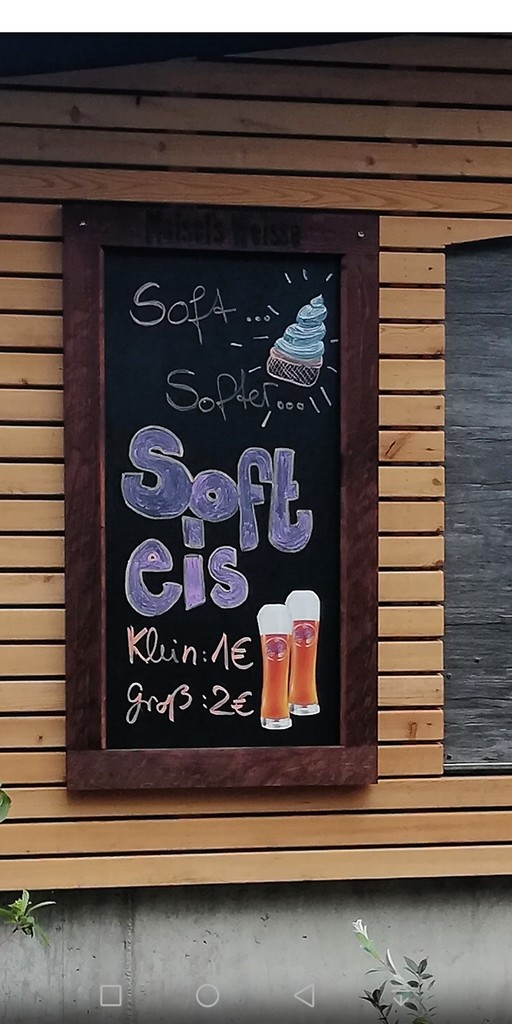 Maisel's Weisse
Soft ...
Softer....
Soft
eis
Klein: 1€
Groß: 2€